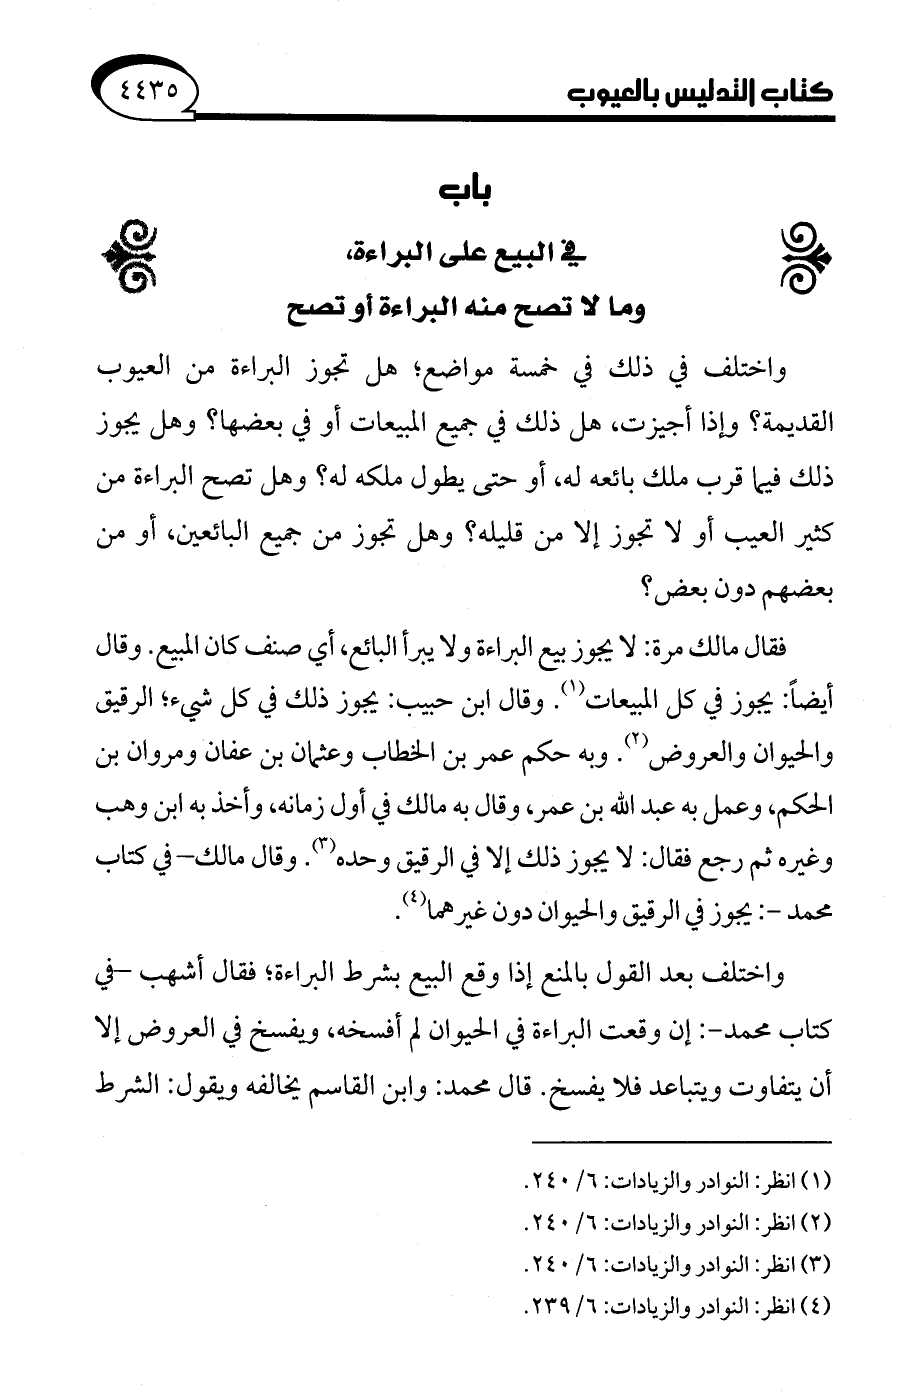 كتاب التدليس بالعيوب
٤٤٣٥
باب
في البيع على البراءة،
وما لا تصح منه البراءة أو تصح
واختلف في ذلك في خمسة مواضع؛ هل تجوز البراءة من العيوب
القديمة؟ وإذا أجيزت، هل ذلك في جميع المبيعات أو في بعضها؟ وهل يجوز
ذلك فيما قرب ملك بائعه له، أو حتى يطول ملكه له؟ وهل تصح البراءة من
كثير العيب أو لا تجوز إلا من قليله؟ وهل تجوز من جميع البائعين، أو من
بعضهم دون بعض؟
فقال مالك مرة: لا يجوز بيع البراءة ولا يبرأ البائع، أي صنف كان المبيع. وقال
أيضاً: يجوز في كل المبيعات(١). وقال ابن حبيب: يجوز ذلك في كل شيء؛ الرقيق
والحيوان والعروض(٢). وبه حكم عمر بن الخطاب وعثمان بن عفان ومروان بن
الحكم، وعمل به عبد الله بن عمر، وقال به مالك في أول زمانه، وأخذ به ابن وهب
وغيره ثم رجع فقال: لا يجوز ذلك إلا في الرقيق وحده(٣). وقال مالك-في كتاب
محمد -: يجوز في الرقيق والحيوان دون غيرهما(٤).
واختلف بعد القول بالمنع إذا وقع البيع بشرط البراءة؛ فقال أشهب -في
كتاب محمد-: إن وقعت البراءة في الحيوان لم أفسخه، ويفسخ في العروض إلا
أن يتفاوت ويتباعد فلا يفسخ. قال محمد: وابن القاسم يخالفه ويقول: الشرط
(١) انظر: النوادر والزيادات: ٦/ ٢٤٠.
(٢) انظر: النوادر والزيادات: ٦/ ٢٤٠.
(٣) انظر: النوادر والزيادات: ٦/ ٢٤٠.
(٤) انظر: النوادر والزيادات: ٦/ ٢٣٩.